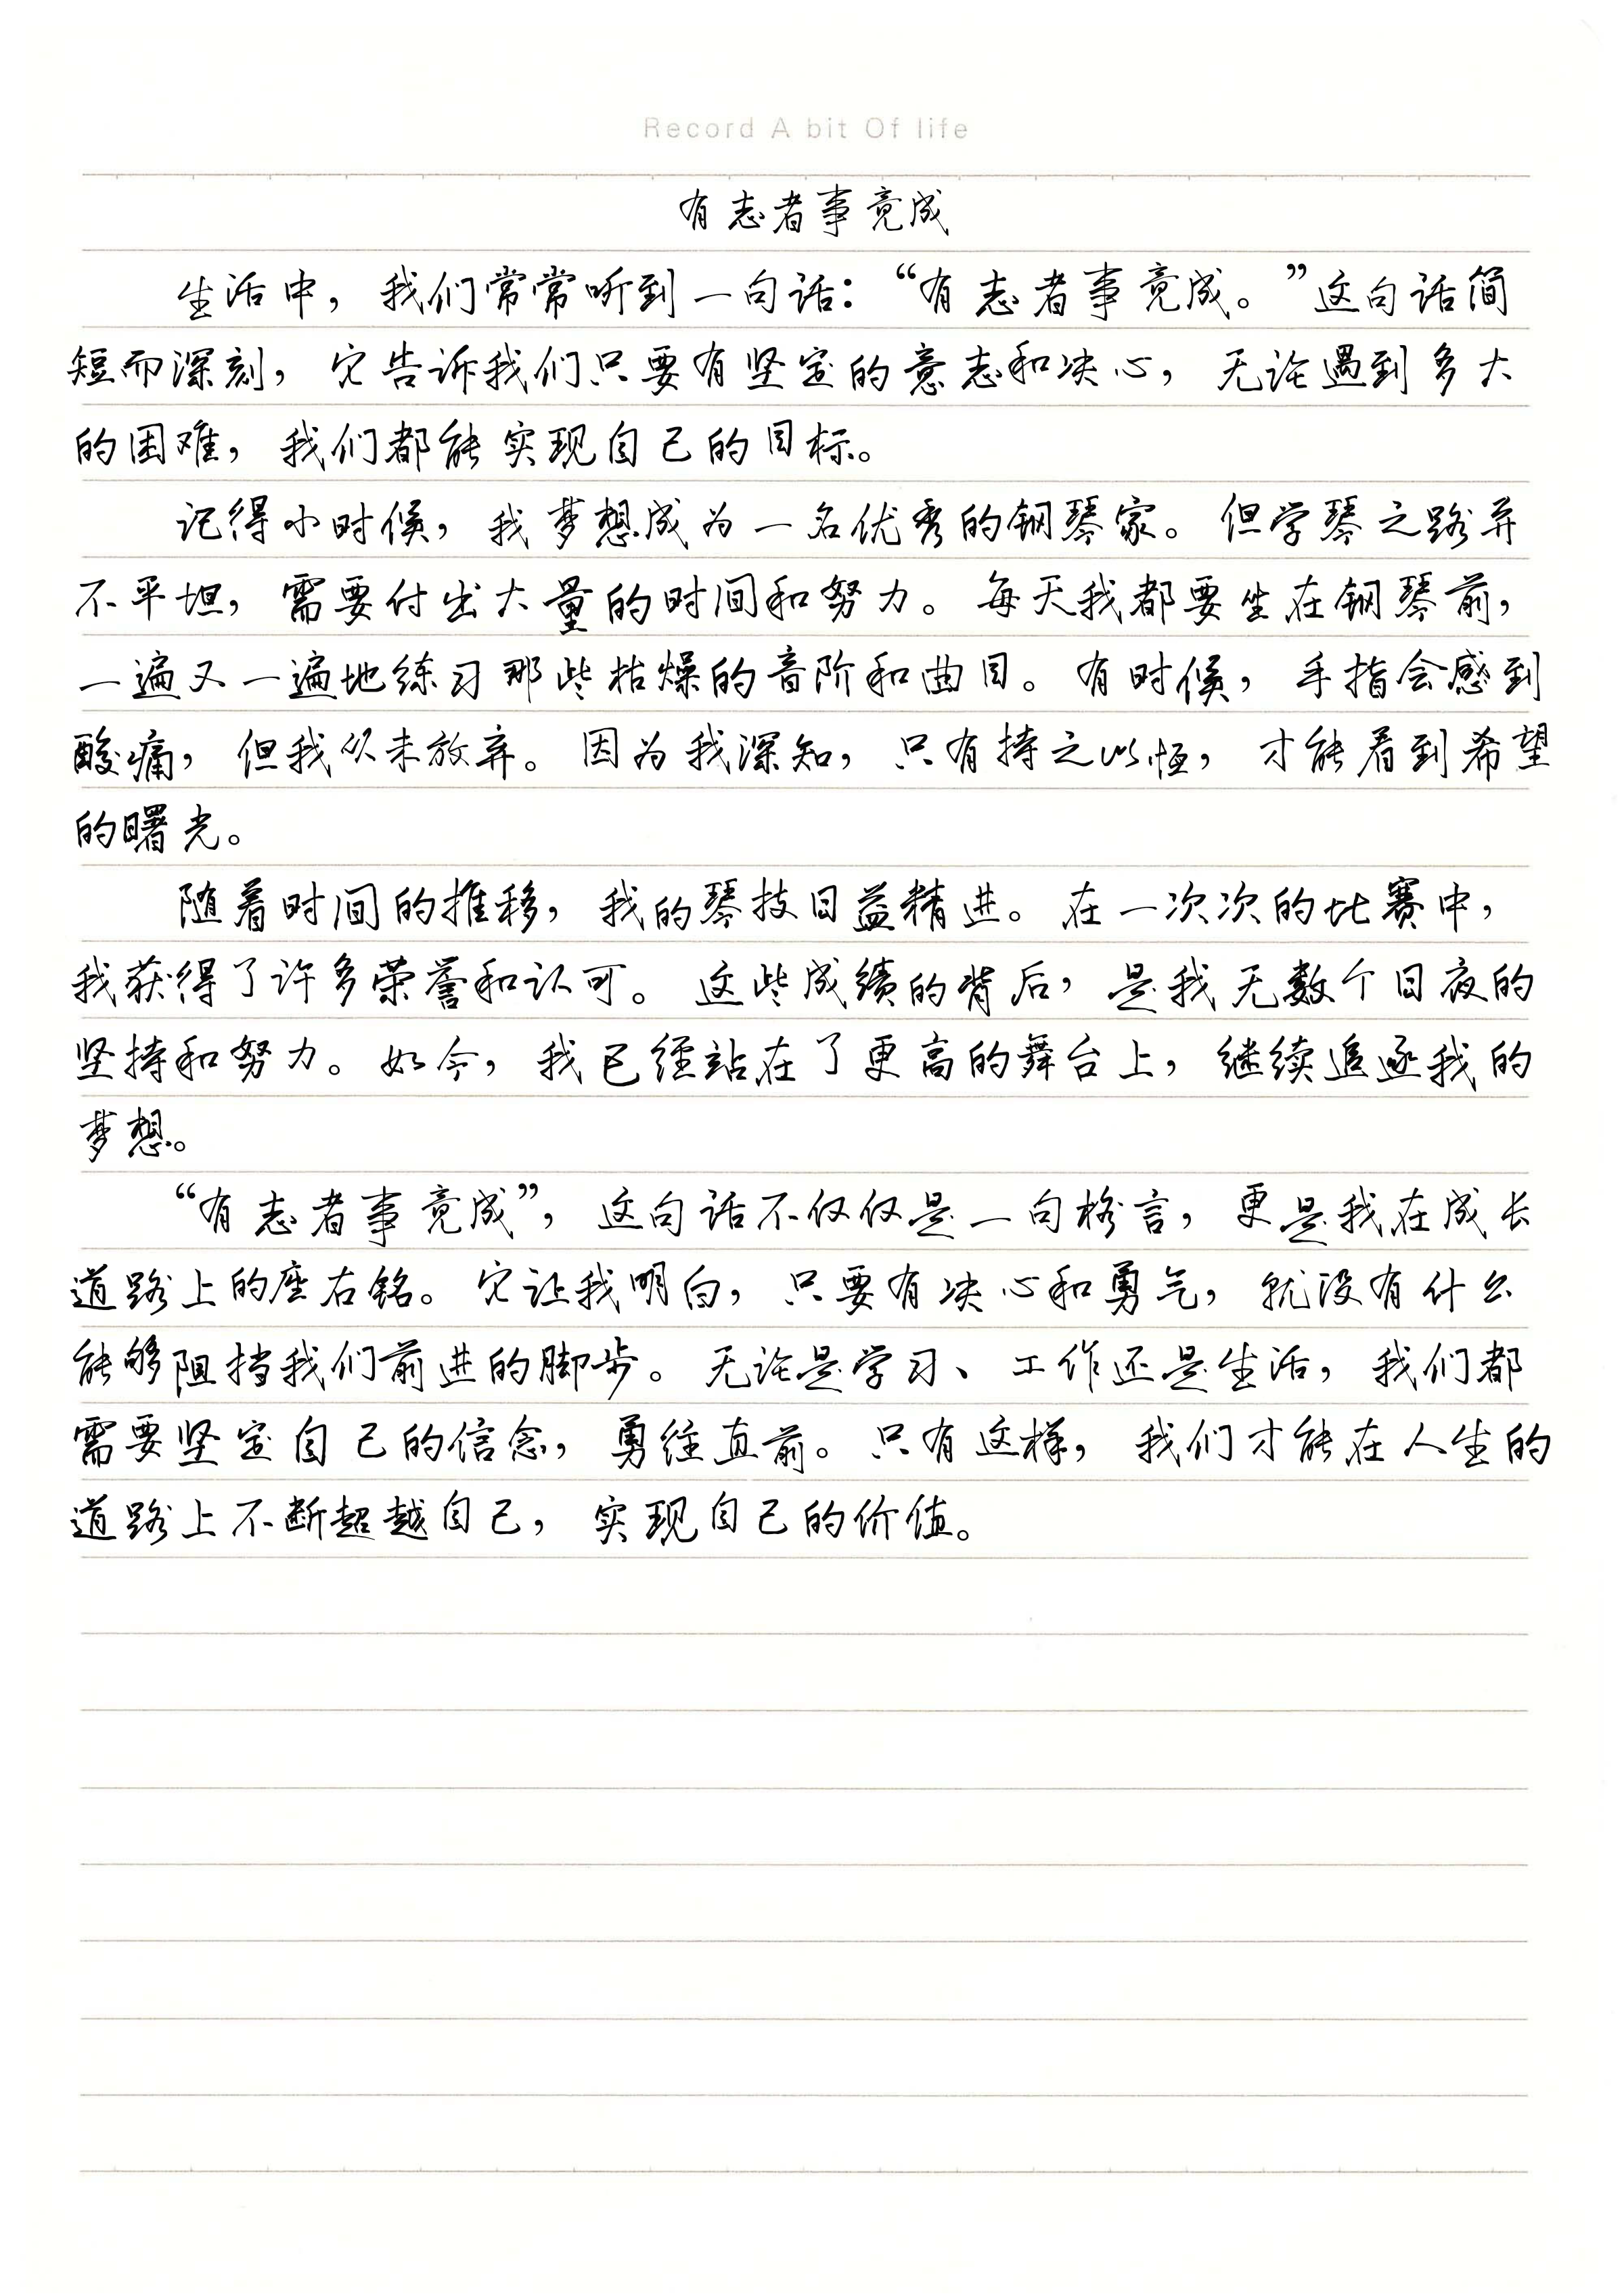 Record A bit Of life
有志者事竟成
生活中，我们常常听到一句话：“有志者事竟成。”这句话简
短而深刻，它告诉我们只要有坚定的意志和决心，无论遇到多大
的困难，我们都能实现自己的目标。
记得小时候，我梦想成为一名优秀的钢琴家。但学琴之路并
不平坦，需要付出大量的时间和努力。每天我都要坐在钢琴前，
一遍又一遍地练习那些枯燥的音阶和曲目。有时候，手指会感到
酸痛，但我从未放弃。因为我深知，只有持之以恒，才能看到希望
的曙光。
随着时间的推移，我的琴技日益精进。在一次次的比赛中，
我获得了许多荣誉和认可。这些成绩的背后，是我无数个日夜的
坚持和努力。如今，我已经站在了更高的舞台上，继续追逐我的
梦想。
“有志者事竟成”，这句话不仅仅是一句格言，更是我在成长
道路上的座右铭。它让我明白，只要有决心和勇气，就没有什么
能够阻挡我们前进的脚步。无论是学习、工作还是生活，我们都
需要坚定自己的信念，勇往直前。只有这样，我们才能在人生的
道路上不断超越自己，实现自己的价值。